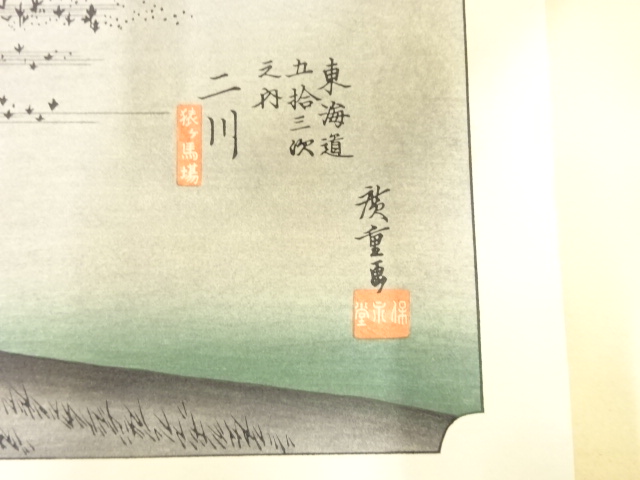 東海道
五拾三次
之内
二川
猿ヶ馬場
廣重画
保永堂